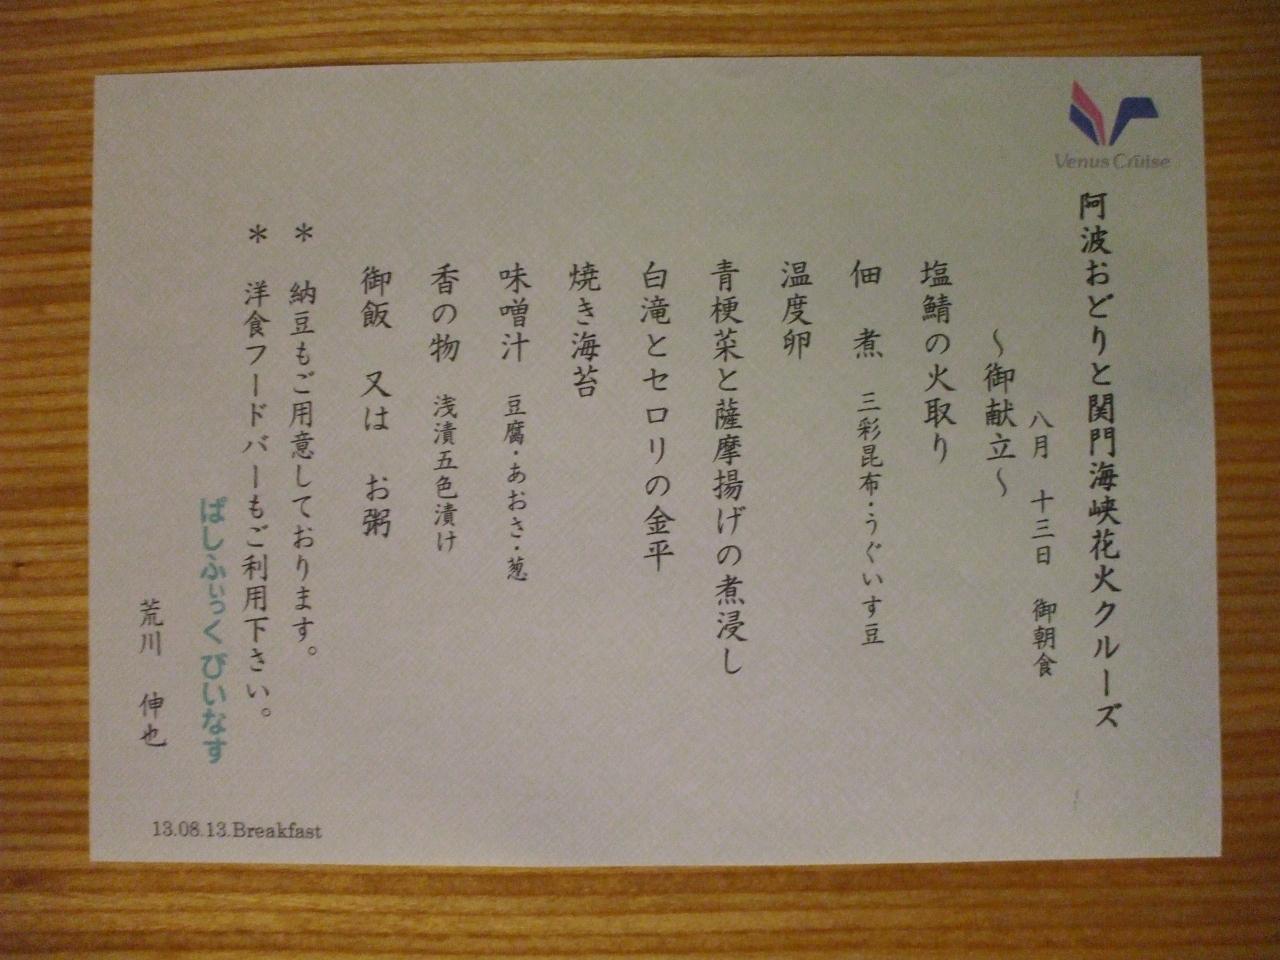 Venus Cruise
阿波おどりと関門海峡花火クルーズ
八月 十三日 御朝食
～御献立～
塩鯖の火取り
佃 煮 三彩昆布・うぐいす豆
温度卵
青梗菜と薩摩揚げの煮浸し
白滝とセロリの金平
焼き海苔
味噌汁 豆腐・あおさ・葱
香の物 浅漬五色漬け
御飯 又は お粥
＊ 納豆もご用意しております。
＊ 洋食フードバーもご利用下さい。
ぱしふぃっく びいなす
荒川 伸也
13.08.13.Breakfast